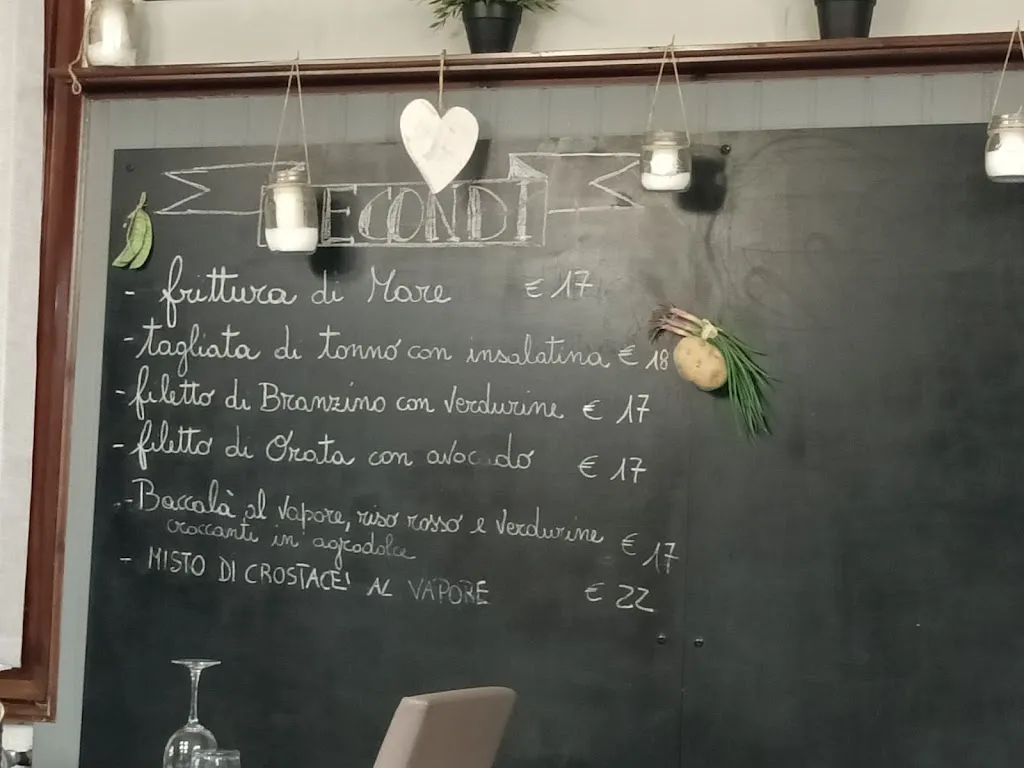 ECONDI
- frittura di Mare € 17
- tagliata di tonno con insalatina € 18
- filetto di Branzino con verdurine € 17
- filetto di Orata con avocado € 17
- Baccalà al vapore, riso rosso e verdurine
croccanti in agrodolce € 17
- MISTO DI CROSTACEI AL VAPORE € 22